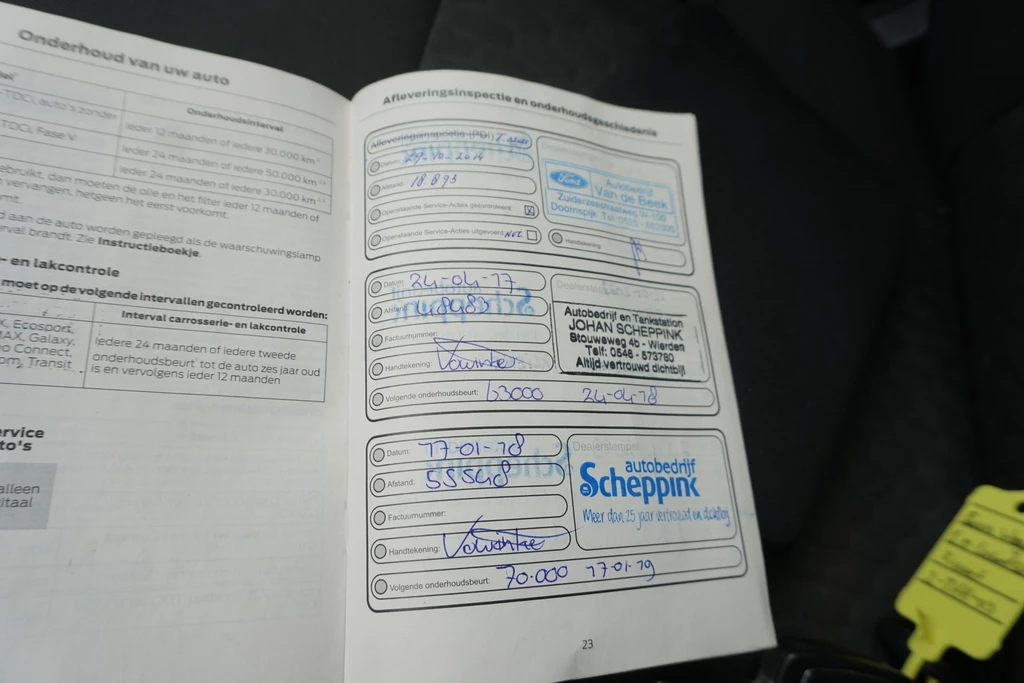 Onderhoud van uw auto
Onderhoudsinterval
TDCi, auto's zonder
Ieder 12 maanden of iedere 30.000 km
TDCi, Fase V
Ieder 24 maanden of iedere 50.000 km
Ieder 24 maanden of iedere 30.000 km
ebruikt, dan moeten de olie en het filter ieder 12 maanden of
vervangen, hetgeen het eerst voorkomt.
mt.
d aan de auto worden gepleegd als de waarschuwingslamp
erval brandt. Zie Instructieboekje.
- en lakcontrole
moet op de volgende intervallen gecontroleerd worden:
Interval carrosserie- en lakcontrole
Ecosport,
MAX, Galaxy,
Connect,
Transit
Iedere 24 maanden of iedere tweede
onderhoudsbeurt tot de auto zes jaar oud
is en vervolgens ieder 12 maanden
ervice
to's
alleen
itaal
Afleveringsinspectie en onderhoudsgeschiedenis
Afleveringsinspectie (PDI)
Datum:
Afstand: 18.893
Openstaande Service-Acties gecontroleerd
Openstaande Service-Acties uitgevoerd
Handtekening:
Ford
Autobedrijf
Van de Beek
Zuiderzeestraatweg W. 100
Doornspijk Tel.
Datum: 24-04-17
Afstand: 48483
Factuurnummer:
Handtekening:
Volgende onderhoudsbeurt: 63000 24-04-18
Dealerstempel
Autobedrijf en Tankstation
JOHAN SCHEPPINK
Stouweweg 4b - Wierden
Telf: 0546 - 573780
Altijd vertrouwd dichtbij!
Datum: 17-01-18
Afstand: 55548
Factuurnummer:
Handtekening:
Volgende onderhoudsbeurt: 70.000 17-01-19
Dealerstempel
autobedrijf
Scheppink
Meer dan 25 jaar vertrouwd en dichtbij
23